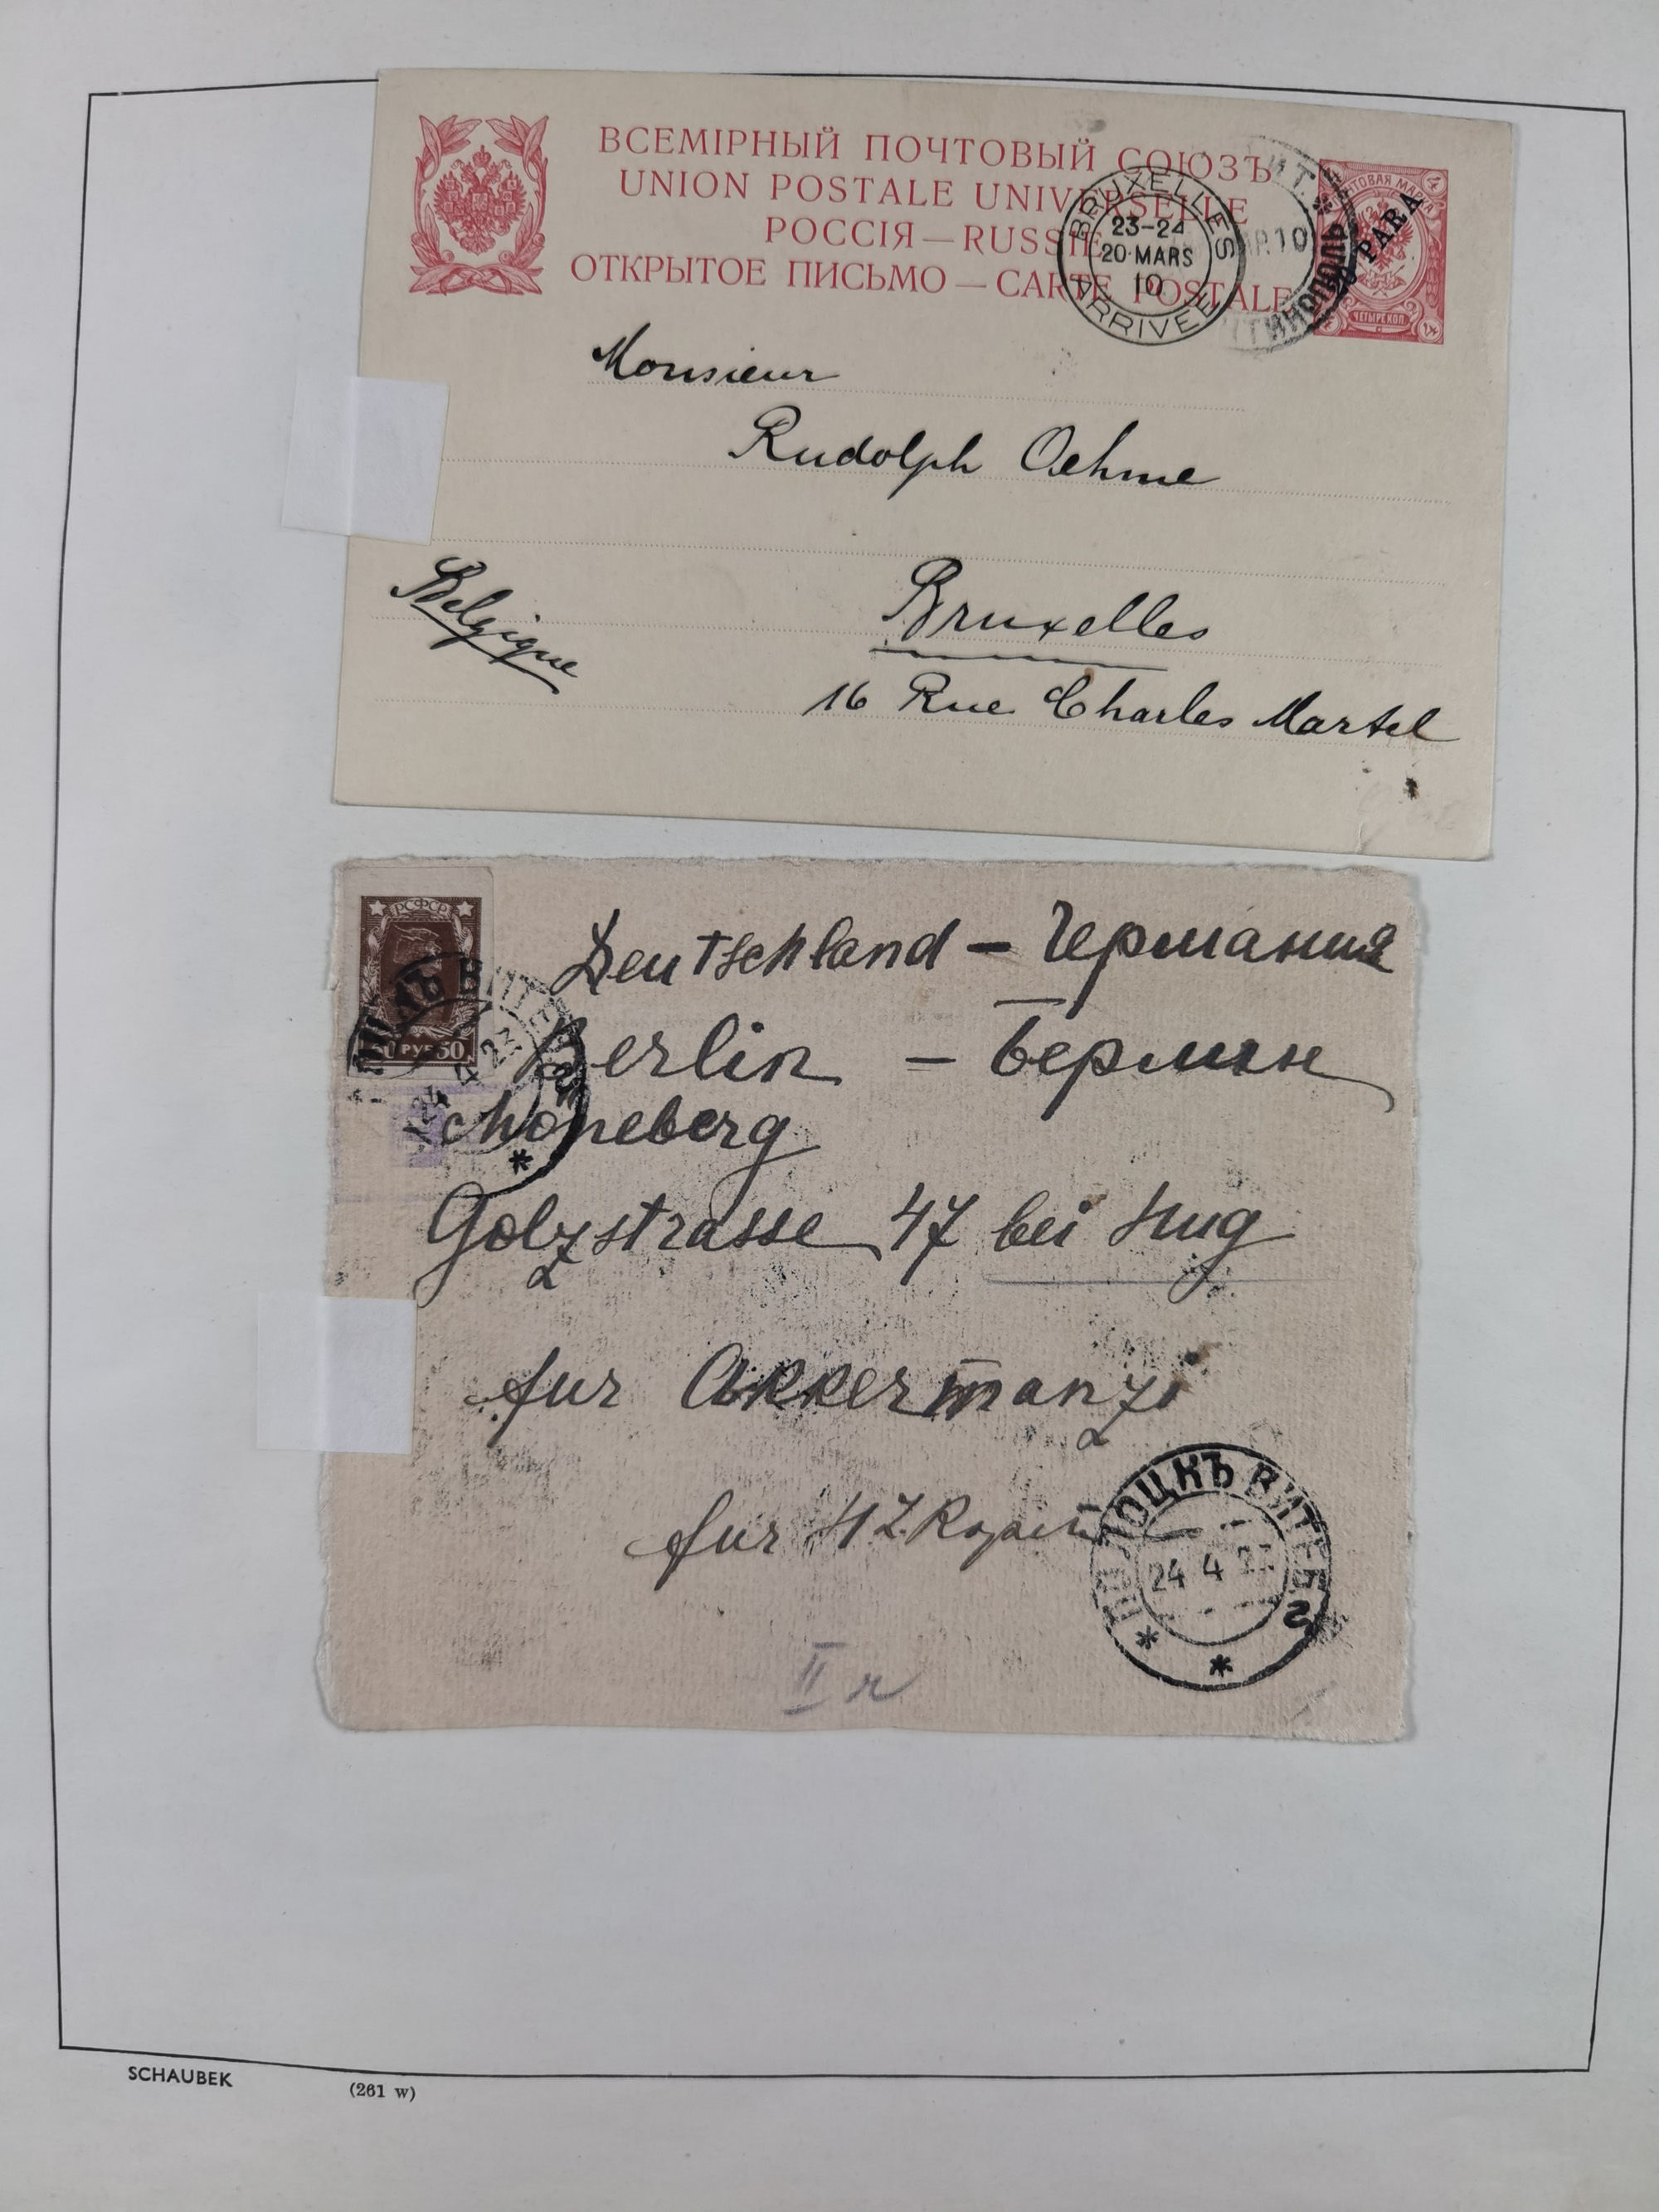 ВСЕМІРНЫЙ ПОЧТОВЫЙ СОЮЗЪ
UNION POSTALE UNIVERSELLE
РОССІЯ — RUSSIE
ОТКРЫТОЕ ПИСЬМО — CARTE POSTALE
BRUXELLES
23-24
20 MARS
10
ARRIVÉE
20 PARA
4
ЧЕТЫРЕ КОП.
Monsieur
Rudolph Oehme
Belgique
Bruxelles
16 Rue Charles Martel
РСФСР
РУБ 50
24 4 23
Deutschland — Германия
Berlin — Берлин
Schöneberg
Golzstrasse 47 bei Hug
für Akkermanzi
für
ПОЛОЦКЪ ВИТЕБ
24 4
II
SCHAUBEK
(261 w)